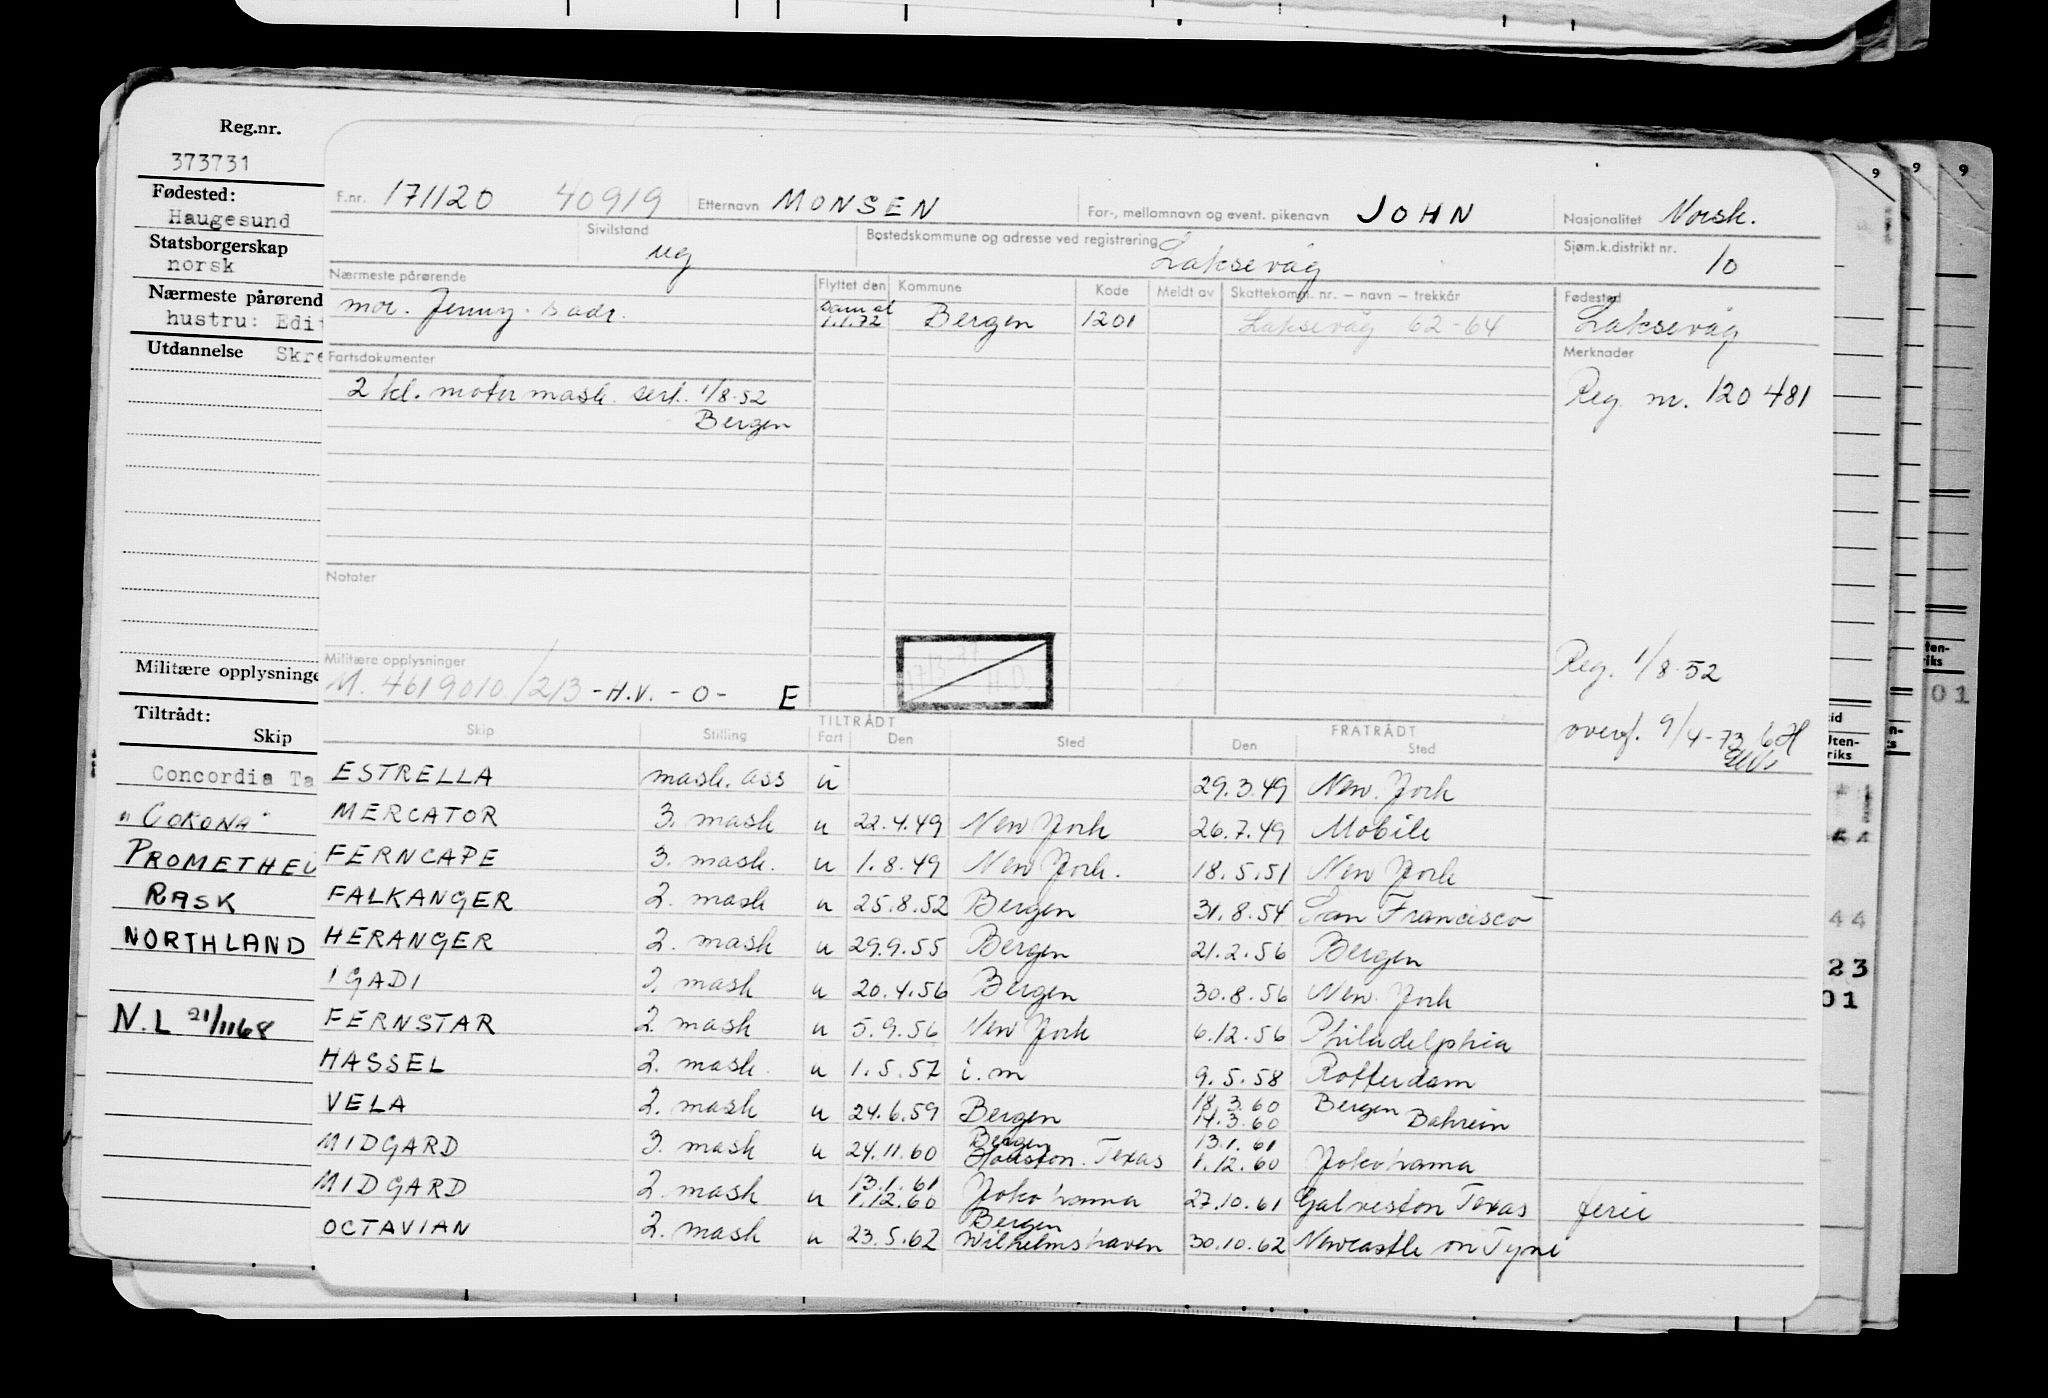 Reg.nr.
373731
Fødested:
Haugesund
Statsborgerskap
norsk
Nærmeste pårørend
hustru: Edit
Utdannelse Skre
Militære opplysninge
Tiltrådt:
Skip
Concordia Ta
"CORONA"
PROMETHEU
RASK
NORTHLAND
N.L 21/1168
F.nr. 171120 40919 Etternavn MONSEN For-, mellomnavn og event. pikenavn JOHN Nasjonalitet Norsk.
Sivilstand ug Bostedskommune og adresse ved registrering Laksevåg Sjøm.k.distrikt nr. 10
Nærmeste pårørende Flyttet den Kommune Kode Meldt av Skattekomm. nr. – navn – trekkår Fødested
mor. Jenny. s adr. 1.1.72 Bergen 1201 Laksevåg 62-64 Laksevåg
Fartsdokumenter Merknader
2 kl. motormask. sert. 1/8-52 Reg nr. 120 481
Bergen
Notater
Militære opplysninger
M. 4619010/213 - H.V. - O - E
Reg. 1/8-52
overf. 9/4-73
Skip Stilling TILTRÅDT Fart Den Sted FRATRÅDT Den Sted
ESTRELLA mask. ass u 29.3.49 New York
MERCATOR 3. mask u 22.4.49 New York 26.7.49 Mobile
FERNCAPE 3. mask. u 1.8.49 New York. 18.5.51 New York
FALKANGER 2. mask u 25.8.52 Bergen 31.8.54 San Francisco
HERANGER 2. mask u 29.9.55 Bergen 21.2.56 Bergen
IGADI 2. mask u 20.4.56 Bergen 30.8.56 New York
FERNSTAR 2. mask u 5.9.56 New York 6.12.56 Philadelphia
HASSEL 2. mask. u 1.5.57 i.m 9.5.58 Rotterdam
VELA 2. mask u 24.6.59 Bergen 18.3.60 14.3.60 Bergen Bahrein
MIDGARD 3. mask u 24.11.60 Bergen Houston. Texas 13.1.61 1.12.60 Jokohama
MIDGARD 2. mask u 13.1.61 1.12.60 Jokohama 27.10.61 Galveston Texas ferie
OCTAVIAN 2. mask u 23.5.62 Bergen Wilhelmshaven 30.10.62 Newcastle on Tyne
9
9
9
ten-
riks
01
tid
Uten-
riks
44
44
23
01